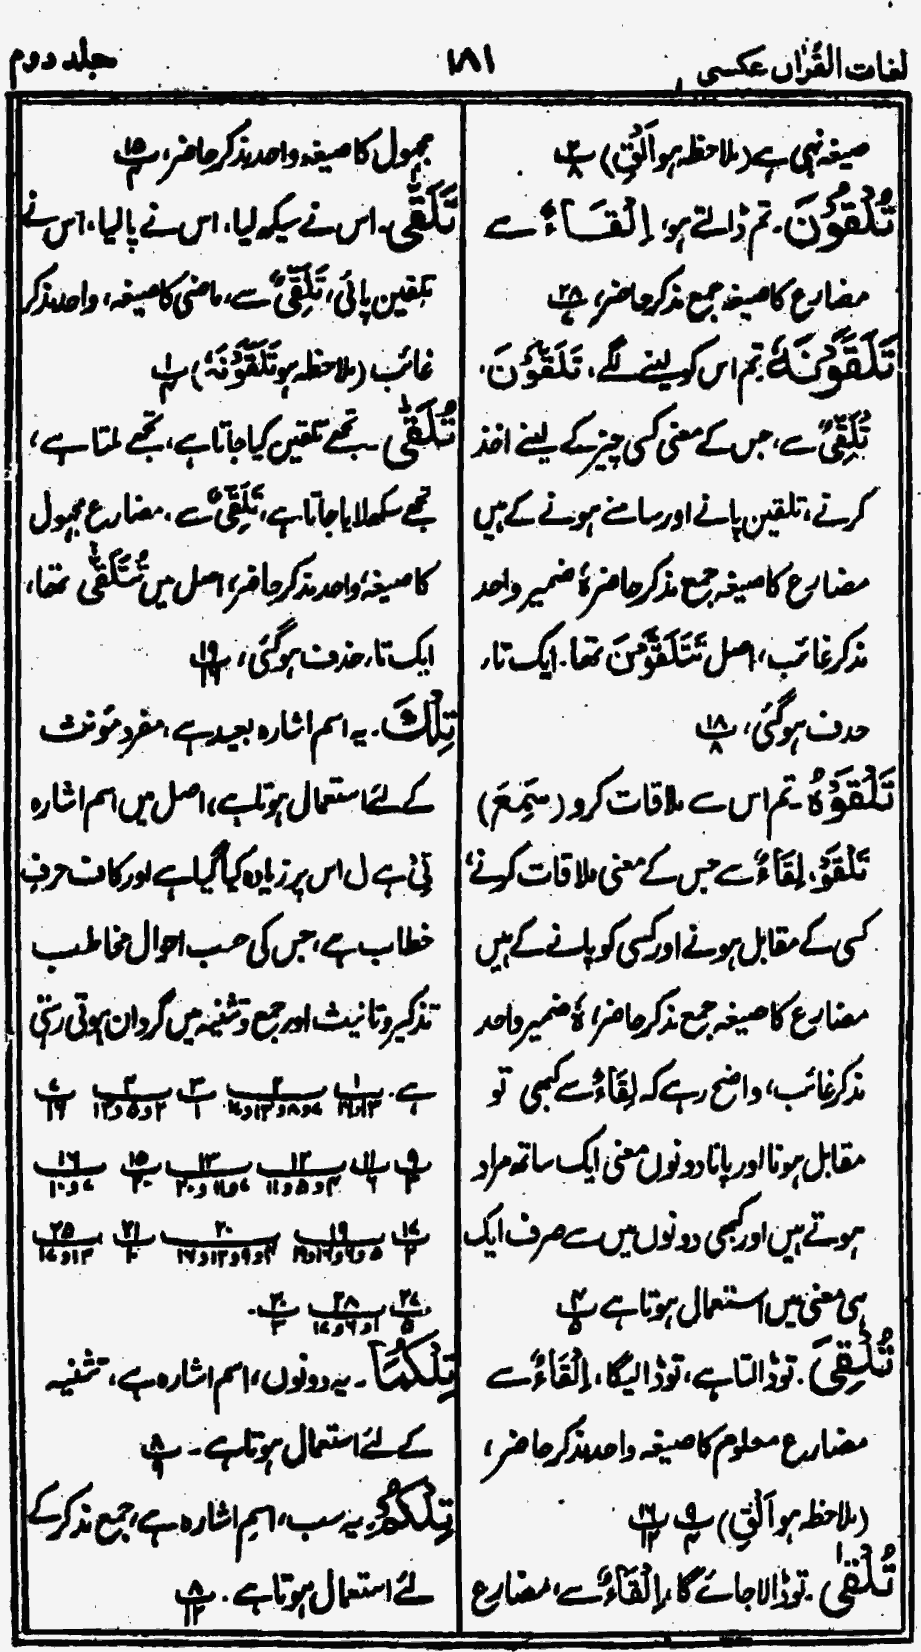 لغات القرآن عکسی ۱۸۱ جلد دوم
صیغہ نہی ہے (ملاحظہ ہو اَلْقِ) پ۳/۸
تُلْقُوْنَ۔ تم ڈالتے ہو، اِلْقَاءٌ سے
مضارع کا صیغہ جمع مذکر حاضر، پ۲۸/۷
تَلَقَّوْنَهٗ تم اس کو لینے لگے، تَلَقَّوْنَ،
تَلَقِّیٌ سے، جس کے معنی کسی چیز کے لینے اخذ
کرنے، تلقین پانے اور سامنے ہونے کے ہیں
مضارع کا صیغہ جمع مذکر حاضر، هٗ ضمیر واحد
مذکر غائب، اصل تَتَلَقَّوْنَ تھا۔ ایک تا،
حذف ہو گئی، پ۱۸/۸
تَلْقَوْهُ۔ تم اس سے ملاقات کرو (سَمِعَ)
تَلْقَوْا، لِقَاءٌ سے جس کے معنی ملاقات کرنے،
کسی کے مقابل ہونے اور کسی کو پانے کے ہیں
مضارع کا صیغہ جمع مذکر حاضر، هٗ ضمیر واحد
مذکر غائب، واضح رہے کہ لِقَاءٌ سے کبھی تو
مقابل ہونا اور پانا دونوں معنی ایک ساتھ مراد
ہوتے ہیں اور کبھی دونوں میں سے صرف ایک
ہی معنی میں استعمال ہوتا ہے پ۴/۵
تُلْقِیَ۔ تو ڈالتا ہے، تو ڈالیگا، اِلْقَاءٌ سے
مضارع معلوم کا صیغہ واحد مذکر حاضر،
(ملاحظہ ہو اَلْقِ) پ۹/۴ پ۱۶/۱۲
تُلْقٰی۔ تو ڈالا جائے گا، اِلْقَاءٌ سے، مضارع
مجہول کا صیغہ واحد مذکر حاضر، پ۱۵/۴
تَلَقّٰی۔ اس نے سیکھ لیا، اس نے پا لیا، اس نے
تلقین پائی، تَلَقِّیٌ سے، ماضی کا صیغہ، واحد مذکر
غائب (ملاحظہ ہو تَلَقَّوْنَهٗ) پ۱/۴
تُلَقّٰی۔ تجھے تلقین کیا جاتا ہے، تجھے ملتا ہے،
تجھے سکھلایا جاتا ہے، تَلَقِّیٌ سے، مضارع مجہول
کا صیغہ، واحد مذکر حاضر، اصل میں تُتَلَقّٰی تھا،
ایک تا، حذف ہو گئی، پ۱۹/۱۶
تِلْكَ۔ یہ اسم اشارہ بعید ہے، مفرد مؤنث
کے لئے استعمال ہوتا ہے، اصل میں اسم اشارہ
تِیْ ہے ل اس پر زیادہ کیا گیا ہے اور کاف حرف
خطاب ہے، جس کی حسب احوال مخاطب
تذکیر و تانیث اور جمع و تثنیہ میں گردان ہوتی رہتی
ہے۔ ۱/۱۳و۱۶ ۲/۷و۸و۱۳و۱۷ ۳/۱ ۴/۲و۵و۱۳ ۷/۱۶
۹/۳ ۱۱/۶ ۱۲/۴و۵و۱۱ ۱۳/۷و۱۱و۲۰ ۱۵/۲۰ ۱۶/۷و۱۰
۱۷/۲ ۱۹/۵و۶و۱۶و۱۹ ۲۰/۴و۹و۱۲و۱۶ ۲۱/۱۰ ۲۵/۱۳و۱۷
۲۷/۵ ۲۸/۱و۶و۱۷ ۳۰/۳۔
تِلْكُمَا۔ یہ دونوں، اسم اشارہ ہے، تثنیہ
کے لئے استعمال ہوتا ہے۔ پ۸/۹
تِلْكُمُ۔ یہ سب، اسم اشارہ ہے، جمع مذکر کے
لئے استعمال ہوتا ہے۔ پ۸/۱۲